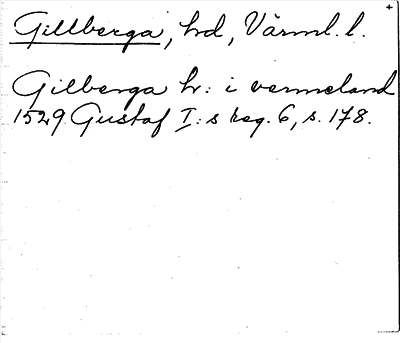 Gillberga, hd, Värml. l.
Gilberga hr: i vermeland
1529 Gustaf I:s reg. 6, s. 178.